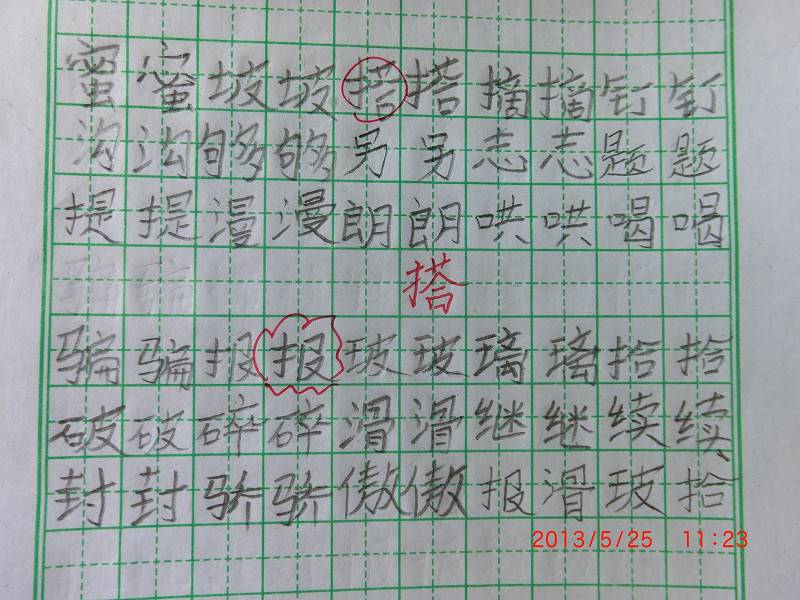 蜜蜜坡坡搭搭摘摘钉钉
沟沟够够另另志志题题
提提漫漫朗朗哄哄喝喝
搭
骗骗报报玻玻璃璃拾拾
破破碎碎滑滑继继续续
封封骄骄傲傲报滑玻拾
2013/5/25 11:23